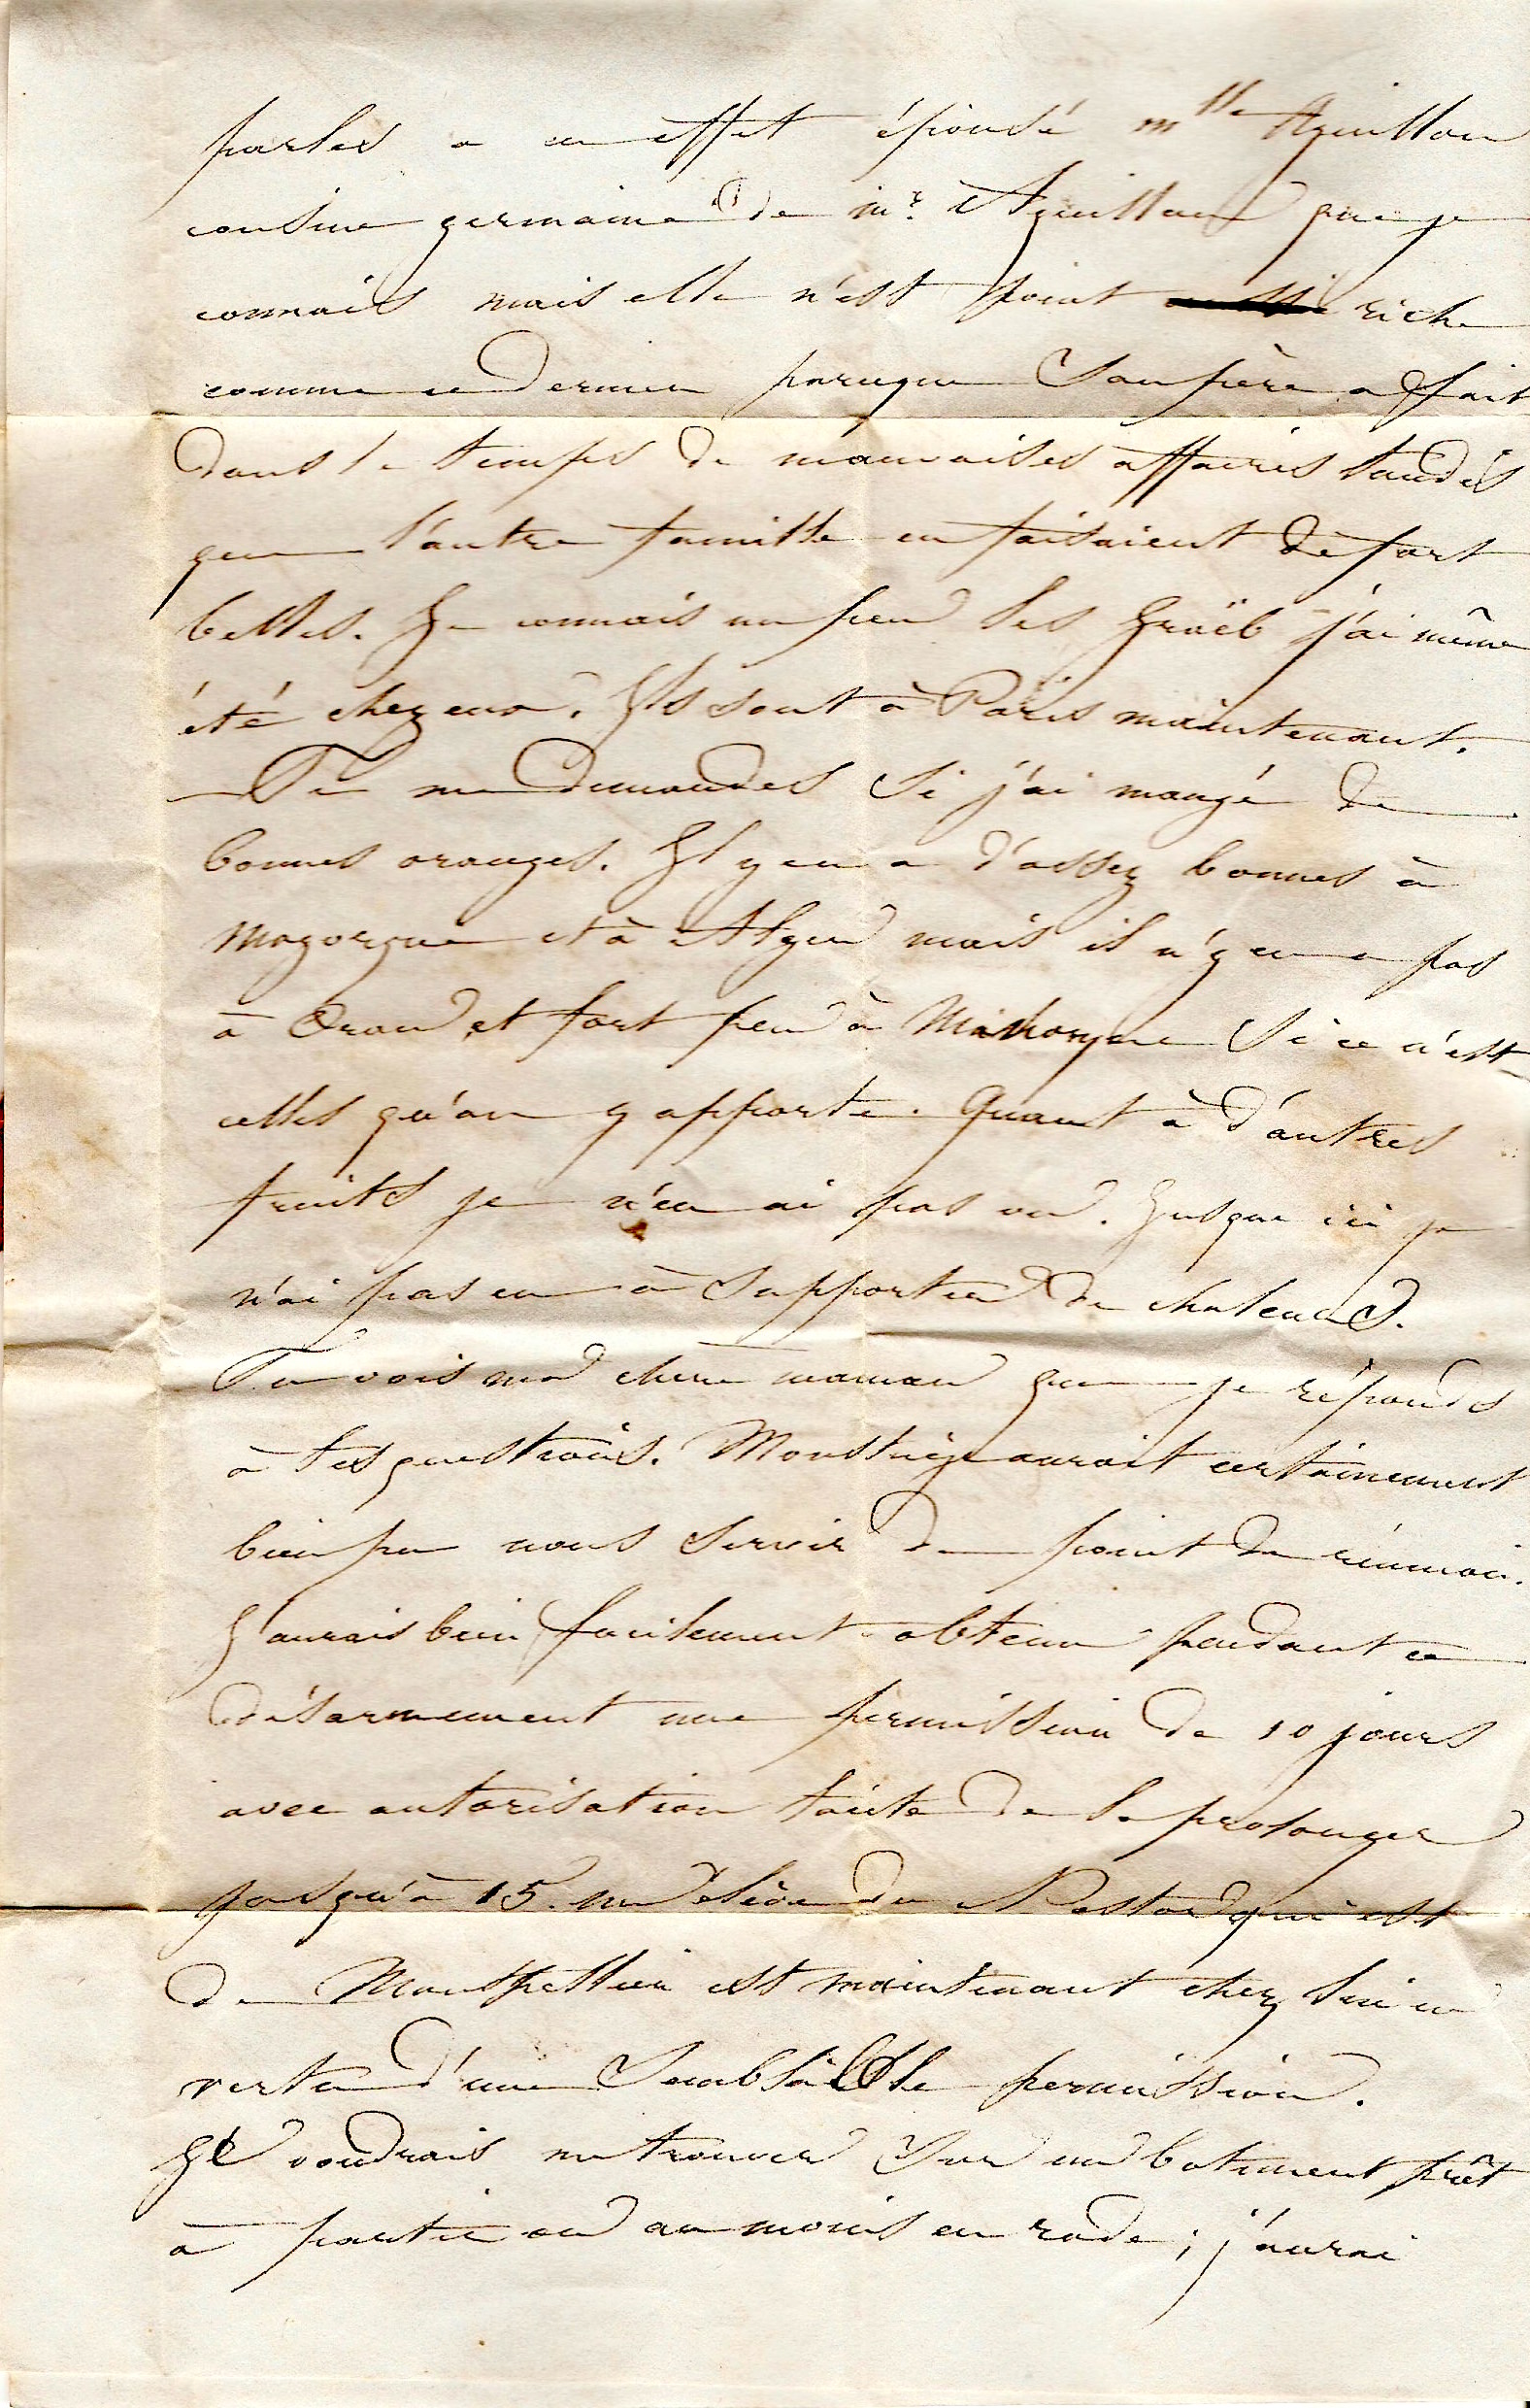 parles a en effet épousé mlle Aguillon
cousine germaine de mr. Aguillon que je
connais mais elle n'est point riche
comme ce dernier parceque son père a fait
dans le temps de mauvaises affaires tandis
que l'autre famille en faisaient de fort
belles. Je connais un peu les Graëb j'ai même
été chez eux. Ils sont à Paris maintenant.
Tu me demandes si j'ai mangé de
bonnes oranges. Il y en a d'assez bonnes à
Mayorque et à Alger mais il n'y en a pas
à Oran et fort peu à si ce n'est
celles qu'on y apporte. Quant à d'autres
fruits je n'en ai pas vu. Jusque ici je
n'ai pas eu à supporter de chaleurs.
Tu vois ma chère maman que je réponds
à tes questions. aurait certainement
bien pu nous servir de point de réunion.
J'aurais bien facilement obtenu pendant ce
désarmement une permission de 10 jours
avec autorisation tacite de la prolonger
jusqu'à 15. un élève du Nestor qui est
de Montpellier est maintenant chez lui en
vertu d'une semblable permission.
Je voudrais me trouver sur un batiment prêt
à partir ou au moins en rade ; j'aurai